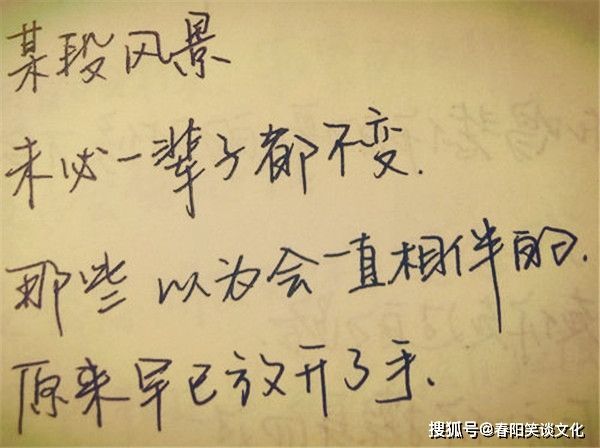 某段风景
未必一辈子都不变.
那些以为会一直相伴的.
原来早已放开了手.
搜狐号@春阳笑谈文化